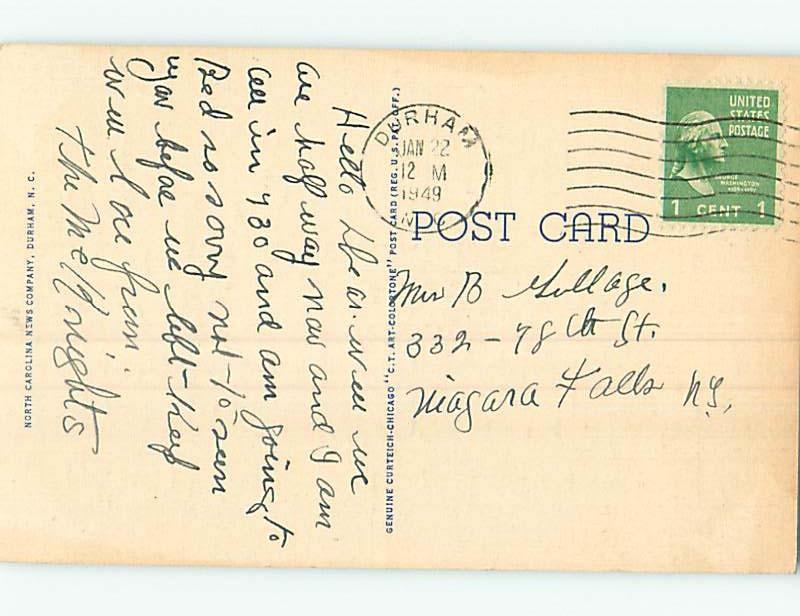 DURHAM
JAN 22
12 M
1949
N.C.
UNITED
STATES
POSTAGE
GEORGE
WASHINGTON
1 CENT 1
POST CARD
Mrs B
332 - 78th St.
Niagara Falls N.Y.
Hello Dear. well we
are half way now and I am
all in 430 and am going to
Bed so sorry not to seen
you before we left - Keep
well Love from.
The McKnights
NORTH CAROLINA NEWS COMPANY, DURHAM, N. C.
GENUINE CURTEICH-CHICAGO "C.T. ART-COLORTONE" POST CARD (REG. U.S. PAT. OFF.)